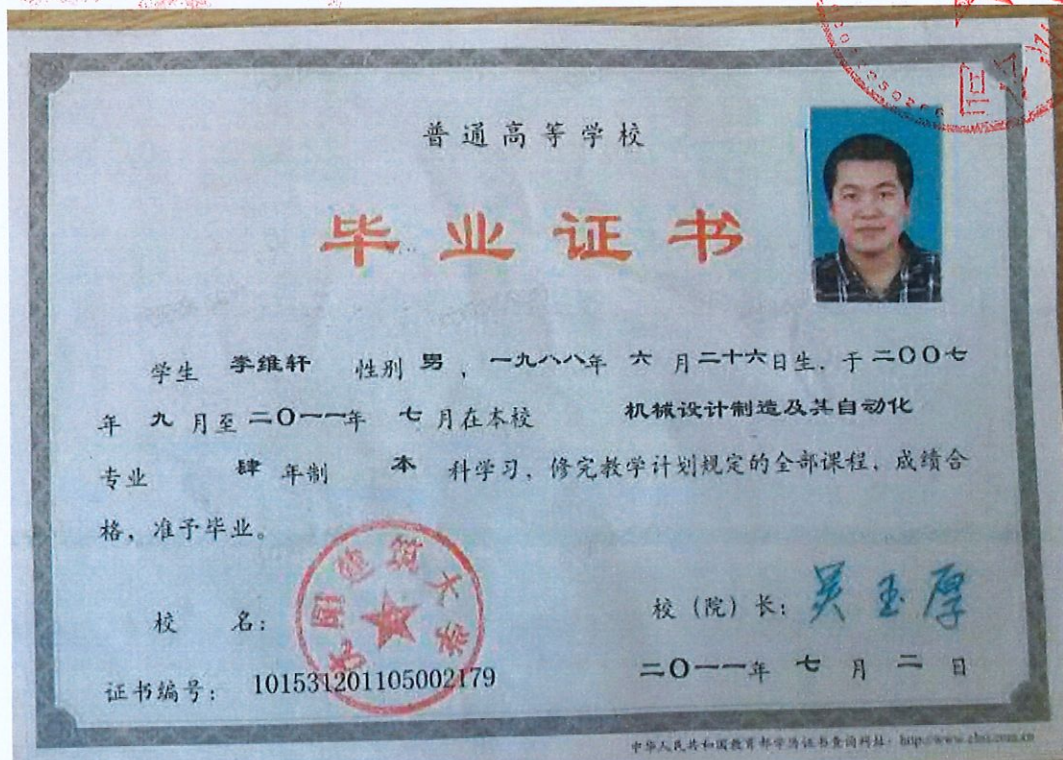 普通高等学校
毕业证书
学生 李维轩 性别 男 ，一九八八年 六 月二十六日生，于二〇〇七
年 九 月至二〇一一年 七 月在本校 机械设计制造及其自动化
专业 肆 年制 本 科学习，修完教学计划规定的全部课程，成绩合
格，准予毕业。
沈阳建筑大学
校 名：
校（院）长：吴玉厚
证书编号：101531201105002179
二〇一一年 七 月 二 日
中华人民共和国教育部学历证书查询网址：http://www.chsi.com.cn